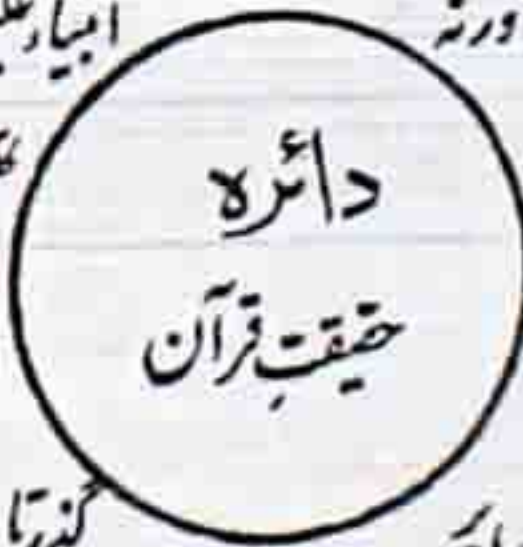 ورنہ
انبیاء
دائرہ
حقیقتِ قرآن
گذرتا